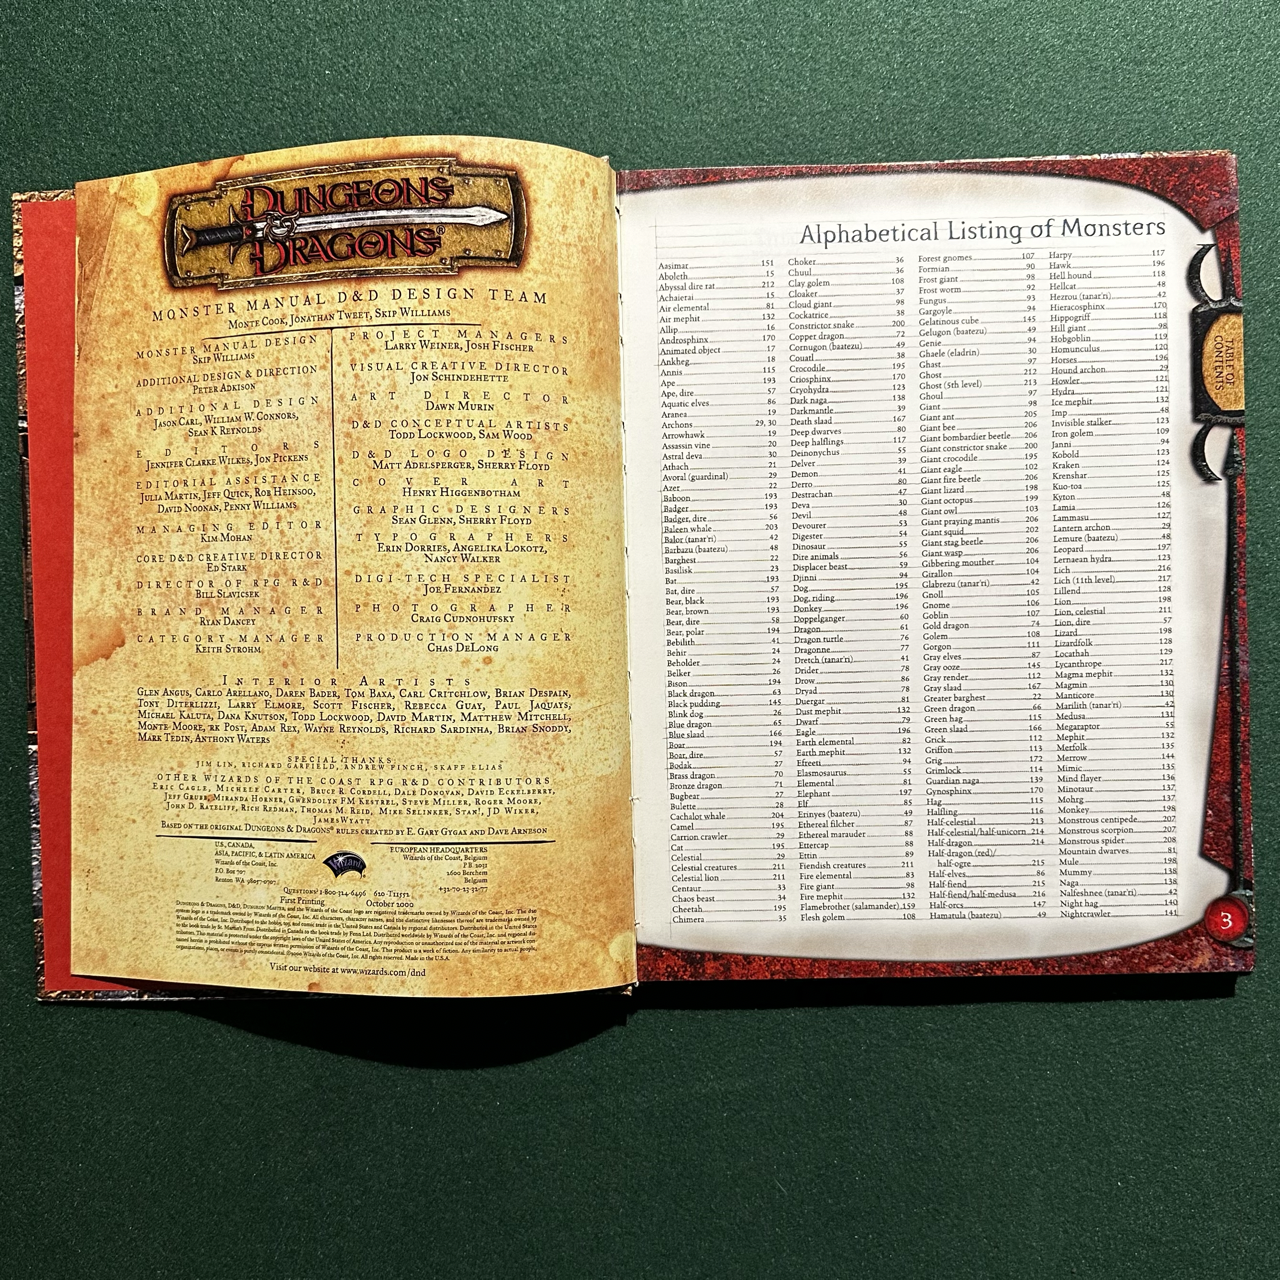 DUNGEONS
DRAGONS®
MONSTER MANUAL D&D DESIGN TEAM
MONTE COOK, JONATHAN TWEET, SKIP WILLIAMS
MONSTER MANUAL DESIGN
SKIP WILLIAMS
ADDITIONAL DESIGN & DIRECTION
PETER ADKISON
ADDITIONAL DESIGN
JASON CARL, WILLIAM W. CONNORS,
SEAN K REYNOLDS
EDITORS
JENNIFER CLARKE WILKES, JON PICKENS
EDITORIAL ASSISTANCE
JULIA MARTIN, JEFF QUICK, ROB HEINSOO,
DAVID NOONAN, PENNY WILLIAMS
MANAGING EDITOR
KIM MOHAN
CORE D&D CREATIVE DIRECTOR
ED STARK
DIRECTOR OF RPG R&D
BILL SLAVICSEK
BRAND MANAGER
RYAN DANCEY
CATEGORY MANAGER
KEITH STROHM
PROJECT MANAGERS
LARRY WEINER, JOSH FISCHER
VISUAL CREATIVE DIRECTOR
JON SCHINDEHETTE
ART DIRECTOR
DAWN MURIN
D&D CONCEPTUAL ARTISTS
TODD LOCKWOOD, SAM WOOD
D&D LOGO DESIGN
MATT ADELSPERGER, SHERRY FLOYD
COVER ART
HENRY HIGGENBOTHAM
GRAPHIC DESIGNERS
SEAN GLENN, SHERRY FLOYD
TYPOGRAPHERS
ERIN DORRIES, ANGELIKA LOKOTZ,
NANCY WALKER
DIGI-TECH SPECIALIST
JOE FERNANDEZ
PHOTOGRAPHER
CRAIG CUDNOHUFSKY
PRODUCTION MANAGER
CHAS DELONG
INTERIOR ARTISTS
GLEN ANGUS, CARLO ARELLANO, DAREN BADER, TOM BAXA, CARL CRITCHLOW, BRIAN DESPAIN,
TONY DITERLIZZI, LARRY ELMORE, SCOTT FISCHER, REBECCA GUAY, PAUL JAQUAYS,
MICHAEL KALUTA, DANA KNUTSON, TODD LOCKWOOD, DAVID MARTIN, MATTHEW MITCHELL,
MONTE MOORE, RK POST, ADAM REX, WAYNE REYNOLDS, RICHARD SARDINHA, BRIAN SNODDY,
MARK TEDIN, ANTHONY WATERS
SPECIAL THANKS
JIM LIN, RICHARD GARFIELD, ANDREW FINCH, SKAFF ELIAS
OTHER WIZARDS OF THE COAST RPG R&D CONTRIBUTORS
ERIC CAGLE, MICHELE CARTER, BRUCE R. CORDELL, DALE DONOVAN, DAVID ECKELBERRY,
JEFF GRUBB, MIRANDA HORNER, GWENDOLYN FM KESTREL, STEVE MILLER, ROGER MOORE,
JOHN D. RATELIFF, RICH REDMAN, THOMAS M. REID, MIKE SELINKER, STAN!, JD WIKER,
JAMES WYATT
BASED ON THE ORIGINAL DUNGEONS & DRAGONS® RULES CREATED BY E. GARY GYGAX AND DAVE ARNESON
U.S., CANADA,
ASIA, PACIFIC, & LATIN AMERICA
Wizards of the Coast, Inc.
P.O. Box 707
Renton WA 98057-0707
Wizards
EUROPEAN HEADQUARTERS
Wizards of the Coast, Belgium
P.B 2031
2600 Berchem
Belgium
+32-70-23-32-77
QUESTIONS? 1-800-324-6496
First Printing
October 2000
DUNGEONS & DRAGONS, D&D, DUNGEON MASTER, and the Wizards of the Coast logo are registered trademarks owned by Wizards of the Coast, Inc. The d20
system logo is a trademark owned by Wizards of the Coast, Inc. All characters, character names, and the distinctive likenesses thereof are trademarks owned by
Wizards of the Coast, Inc. Distributed to the hobby, toy, and comic trade in the United States and Canada by regional distributors. Distributed in the United States
to the book trade by St. Martin's Press. Distributed in Canada to the book trade by Fenn Ltd. Distributed worldwide by Wizards of the Coast, Inc. and regional dis-
tributors. This material is protected under the copyright laws of the United States of America. Any reproduction or unauthorized use of the material or artwork con-
tained herein is prohibited without the express written permission of Wizards of the Coast, Inc. This product is a work of fiction. Any similarity to actual people,
organizations, places, or events is purely coincidental. ©2000 Wizards of the Coast, Inc. All rights reserved. Made in the U.S.A.
Visit our website at www.wizards.com/dnd
Alphabetical Listing of Monsters
Aasimar 151
Aboleth 15
Abyssal dire rat 212
Achaierai 15
Air elemental 81
Air mephit 132
Allip 16
Androsphinx 170
Animated object 17
Ankheg 18
Annis 115
Ape 193
Ape, dire 57
Aquatic elves 86
Aranea 19
Archons 29, 30
Arrowhawk 19
Assassin vine 20
Astral deva 30
Athach 21
Avoral (guardinal) 29
Azer 22
Baboon 193
Badger 193
Badger, dire 56
Baleen whale 203
Balor (tanar'ri) 42
Barbazu (baatezu) 48
Barghest 22
Basilisk 23
Bat 193
Bat, dire 57
Bear, black 193
Bear, brown 193
Bear, dire 58
Bear, polar 194
Bebilith 41
Behir 24
Beholder 24
Belker 26
Bison 194
Black dragon 63
Black pudding 145
Blink dog 26
Blue dragon 65
Blue slaad 166
Boar 194
Boar, dire 57
Bodak 27
Brass dragon 70
Bronze dragon 71
Bugbear 27
Bulette 28
Cachalot whale 204
Camel 195
Carrion crawler 29
Cat 195
Celestial 29
Celestial creatures 211
Celestial lion 211
Centaur 33
Chaos beast 34
Cheetah 195
Chimera 35
Choker 36
Chuul 36
Clay golem 108
Cloaker 37
Cloud giant 98
Cockatrice 38
Constrictor snake 200
Copper dragon 72
Cornugon (baatezu) 49
Couatl 38
Crocodile 195
Criosphinx 170
Cryohydra 123
Dark naga 138
Darkmantle 39
Death slaad 167
Deep dwarves 80
Deep halflings 117
Deinonychus 55
Delver 39
Demon 41
Derro 80
Destrachan 47
Deva 30
Devil 48
Devourer 53
Digester 54
Dinosaur 55
Dire animals 56
Displacer beast 59
Djinni 94
Dog 195
Dog, riding 196
Donkey 196
Doppelganger 60
Dragon 61
Dragon turtle 76
Dragonne 77
Dretch (tanar'ri) 41
Drider 78
Drow 86
Dryad 78
Duergar 81
Dust mephit 132
Dwarf 79
Eagle 196
Earth elemental 82
Earth mephit 132
Efreeti 94
Elasmosaurus 55
Elemental 81
Elephant 197
Elf 85
Erinyes (baatezu) 49
Ethereal filcher 87
Ethereal marauder 88
Ettercap 88
Ettin 89
Fiendish creatures 211
Fire elemental 83
Fire giant 98
Fire mephit 132
Flamebrother (salamander) 159
Flesh golem 108
Forest gnomes 107
Formian 90
Frost giant 98
Frost worm 92
Fungus 93
Gargoyle 94
Gelatinous cube 145
Gelugon (baatezu) 49
Genie 94
Ghaele (eladrin) 30
Ghast 97
Ghost 212
Ghost (5th level) 213
Ghoul 97
Giant 98
Giant ant 205
Giant bee 206
Giant bombardier beetle 206
Giant constrictor snake 200
Giant crocodile 195
Giant eagle 102
Giant fire beetle 206
Giant lizard 198
Giant octopus 199
Giant owl 103
Giant praying mantis 206
Giant squid 202
Giant stag beetle 206
Giant wasp 206
Gibbering mouther 104
Girallon 104
Glabrezu (tanar'ri) 42
Gnoll 105
Gnome 106
Goblin 107
Gold dragon 74
Golem 108
Gorgon 111
Gray elves 87
Gray ooze 145
Gray render 112
Gray slaad 167
Greater barghest 22
Green dragon 66
Green hag 115
Green slaad 166
Grick 112
Griffon 113
Grig 172
Grimlock 114
Guardian naga 139
Gynosphinx 170
Hag 115
Halfling 116
Half-celestial 213
Half-celestial/half-unicorn 214
Half-dragon 214
Half-dragon (red)/
half-ogre 215
Half-elves 86
Half-fiend 215
Half-fiend/half-medusa 216
Half-orcs 147
Hamatula (baatezu) 49
Harpy 117
Hawk 196
Hell hound 118
Hellcat 48
Hezrou (tanar'ri) 42
Hieracosphinx 170
Hippogriff 118
Hill giant 98
Hobgoblin 119
Homunculus 120
Horses 196
Hound archon 29
Howler 121
Hydra 121
Ice mephit 132
Imp 48
Invisible stalker 123
Iron golem 109
Janni 94
Kobold 123
Kraken 124
Krenshar 125
Kuo-toa 125
Kyton 48
Lamia 126
Lammasu 127
Lantern archon 29
Lemure (baatezu) 48
Leopard 197
Lernaean hydra 123
Lich 216
Lich (11th level) 217
Lillend 128
Lion 198
Lion, celestial 211
Lion, dire 57
Lizard 198
Lizardfolk 128
Locathah 129
Lycanthrope 217
Magma mephit 132
Magmin 130
Manticore 130
Marilith (tanar'ri) 42
Medusa 131
Megaraptor 55
Mephit 132
Merfolk 135
Merrow 144
Mimic 135
Mind flayer 136
Minotaur 137
Mohrg 137
Monkey 198
Monstrous centipede 207
Monstrous scorpion 207
Monstrous spider 208
Mountain dwarves 81
Mule 198
Mummy 138
Naga 138
Nalfeshnee (tanar'ri) 42
Night hag 140
Nightcrawler 141
TABLE OF
CONTENTS
3